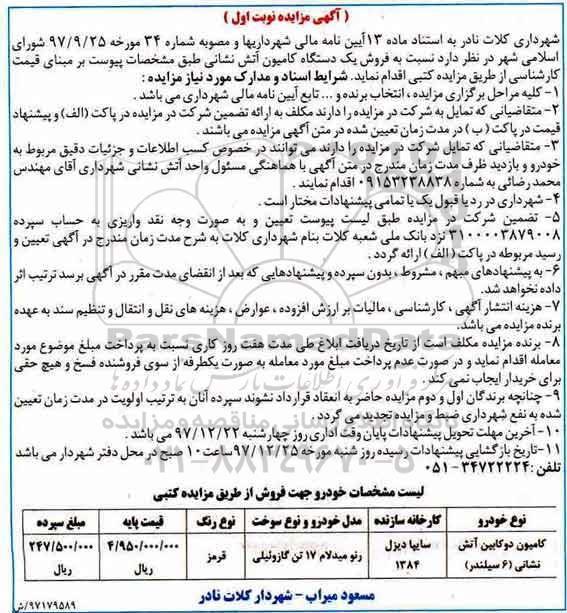 ( آگهی مزایده نوبت اول )
شهرداری کلات نادر به استناد ماده ۱۳آیین نامه مالی شهرداریها و مصوبه شماره ۳۴ مورخه ۹۷/۹/۲۵ شورای
اسلامی شهر در نظر دارد نسبت به فروش یک دستگاه کامیون آتش نشانی طبق مشخصات پیوست بر مبنای قیمت
کارشناسی از طریق مزایده کتبی اقدام نماید. شرایط اسناد و مدارک مورد نیاز مزایده :
۱- کلیه مراحل برگزاری مزایده ، انتخاب برنده و ... تابع آیین نامه مالی شهرداری می باشد .
۲- متقاضیانی که تمایل به شرکت در مزایده را دارند مکلف به ارائه تضمین شرکت در مزایده در پاکت (الف) و پیشنهاد
قیمت در پاکت ( ب ) در مدت زمان تعیین شده در متن آگهی مزایده می باشند .
۳- متقاضیانی که تمایل شرکت در مزایده را دارند می توانند در خصوص کسب اطلاعات و جزئیات دقیق مربوط به
خودرو و بازدید ظرف مدت زمان مندرج در متن آگهی با هماهنگی مسئول واحد آتش نشانی شهرداری آقای مهندس
محمد رضائی به شماره ۰۹۱۵۳۲۳۸۸۳۸ اقدام نمایند .
۴- شهرداری در رد یا قبول یک یا تمامی پیشنهادات مختار است .
۵- تضمین شرکت در مزایده طبق لیست پیوست تعیین و به صورت وجه نقد واریزی به حساب سپرده
۳۱۰۰۰۰۳۸۷۹۰۰۸ نزد بانک ملی شعبه کلات بنام شهرداری کلات به شرح مدت زمان مندرج در آگهی تعیین و
رسید مربوطه در پاکت ( الف ) ارائه گردد .
۶- به پیشنهادهای مبهم ، مشروط ، بدون سپرده و پیشنهادهایی که بعد از انقضای مدت مقرر در آگهی برسد ترتیب اثر
داده نخواهد شد.
۷- هزینه انتشار آگهی ، کارشناسی ، مالیات بر ارزش افزوده ، عوارض ، هزینه های نقل و انتقال و تنظیم سند به عهده
برنده مزایده می باشد.
۸- برنده مزایده مکلف است از تاریخ دریافت ابلاغ طی مدت هفت روز کاری نسبت به پرداخت مبلغ موضوع مورد
معامله اقدام نماید و در صورت عدم پرداخت مبلغ مورد معامله به صورت یکطرفه از سوی فروشنده فسخ و هیچ حقی
برای خریدار ایجاب نمی کند .
۹- چنانچه برندگان اول و دوم مزایده حاضر به انعقاد قرارداد نشوند سپرده آنان به ترتیب اولویت در مدت زمان تعیین
شده به نفع شهرداری ضبط و مزایده تجدید می گردد .
۱۰- آخرین مهلت تحویل پیشنهادات پایان وقت اداری روز چهارشنبه ۹۷/۱۲/۲۲ می باشد .
۱۱-تاریخ بازگشایی پیشنهادات رسیده روز شنبه مورخه ۹۷/۱۲/۲۵ساعت۱۰ صبح در محل دفتر شهردار می باشد
تلفن:۳۴۷۲۲۲۲۴-۰۵۱
لیست مشخصات خودرو جهت فروش از طریق مزایده کتبی
نوع خودرو کارخانه سازنده مدل خودرو و نوع سوخت نوع رنگ قیمت پایه مبلغ سپرده
کامیون دوکابین آتش نشانی (۶ سیلندر) سایپا دیزل ۱۳۸۴ رنو میدلام ۱۷ تن گازوئیلی قرمز ۴/۹۵۰/۰۰۰/۰۰۰ ریال ۲۴۷/۵۰۰/۰۰۰ ریال
مسعود میراب - شهردار کلات نادر
۹۷۱۷۹۵۸۹/ش
ParsNamadData
۰۲۱-۸۸۳۴۹۶۷۰-۵